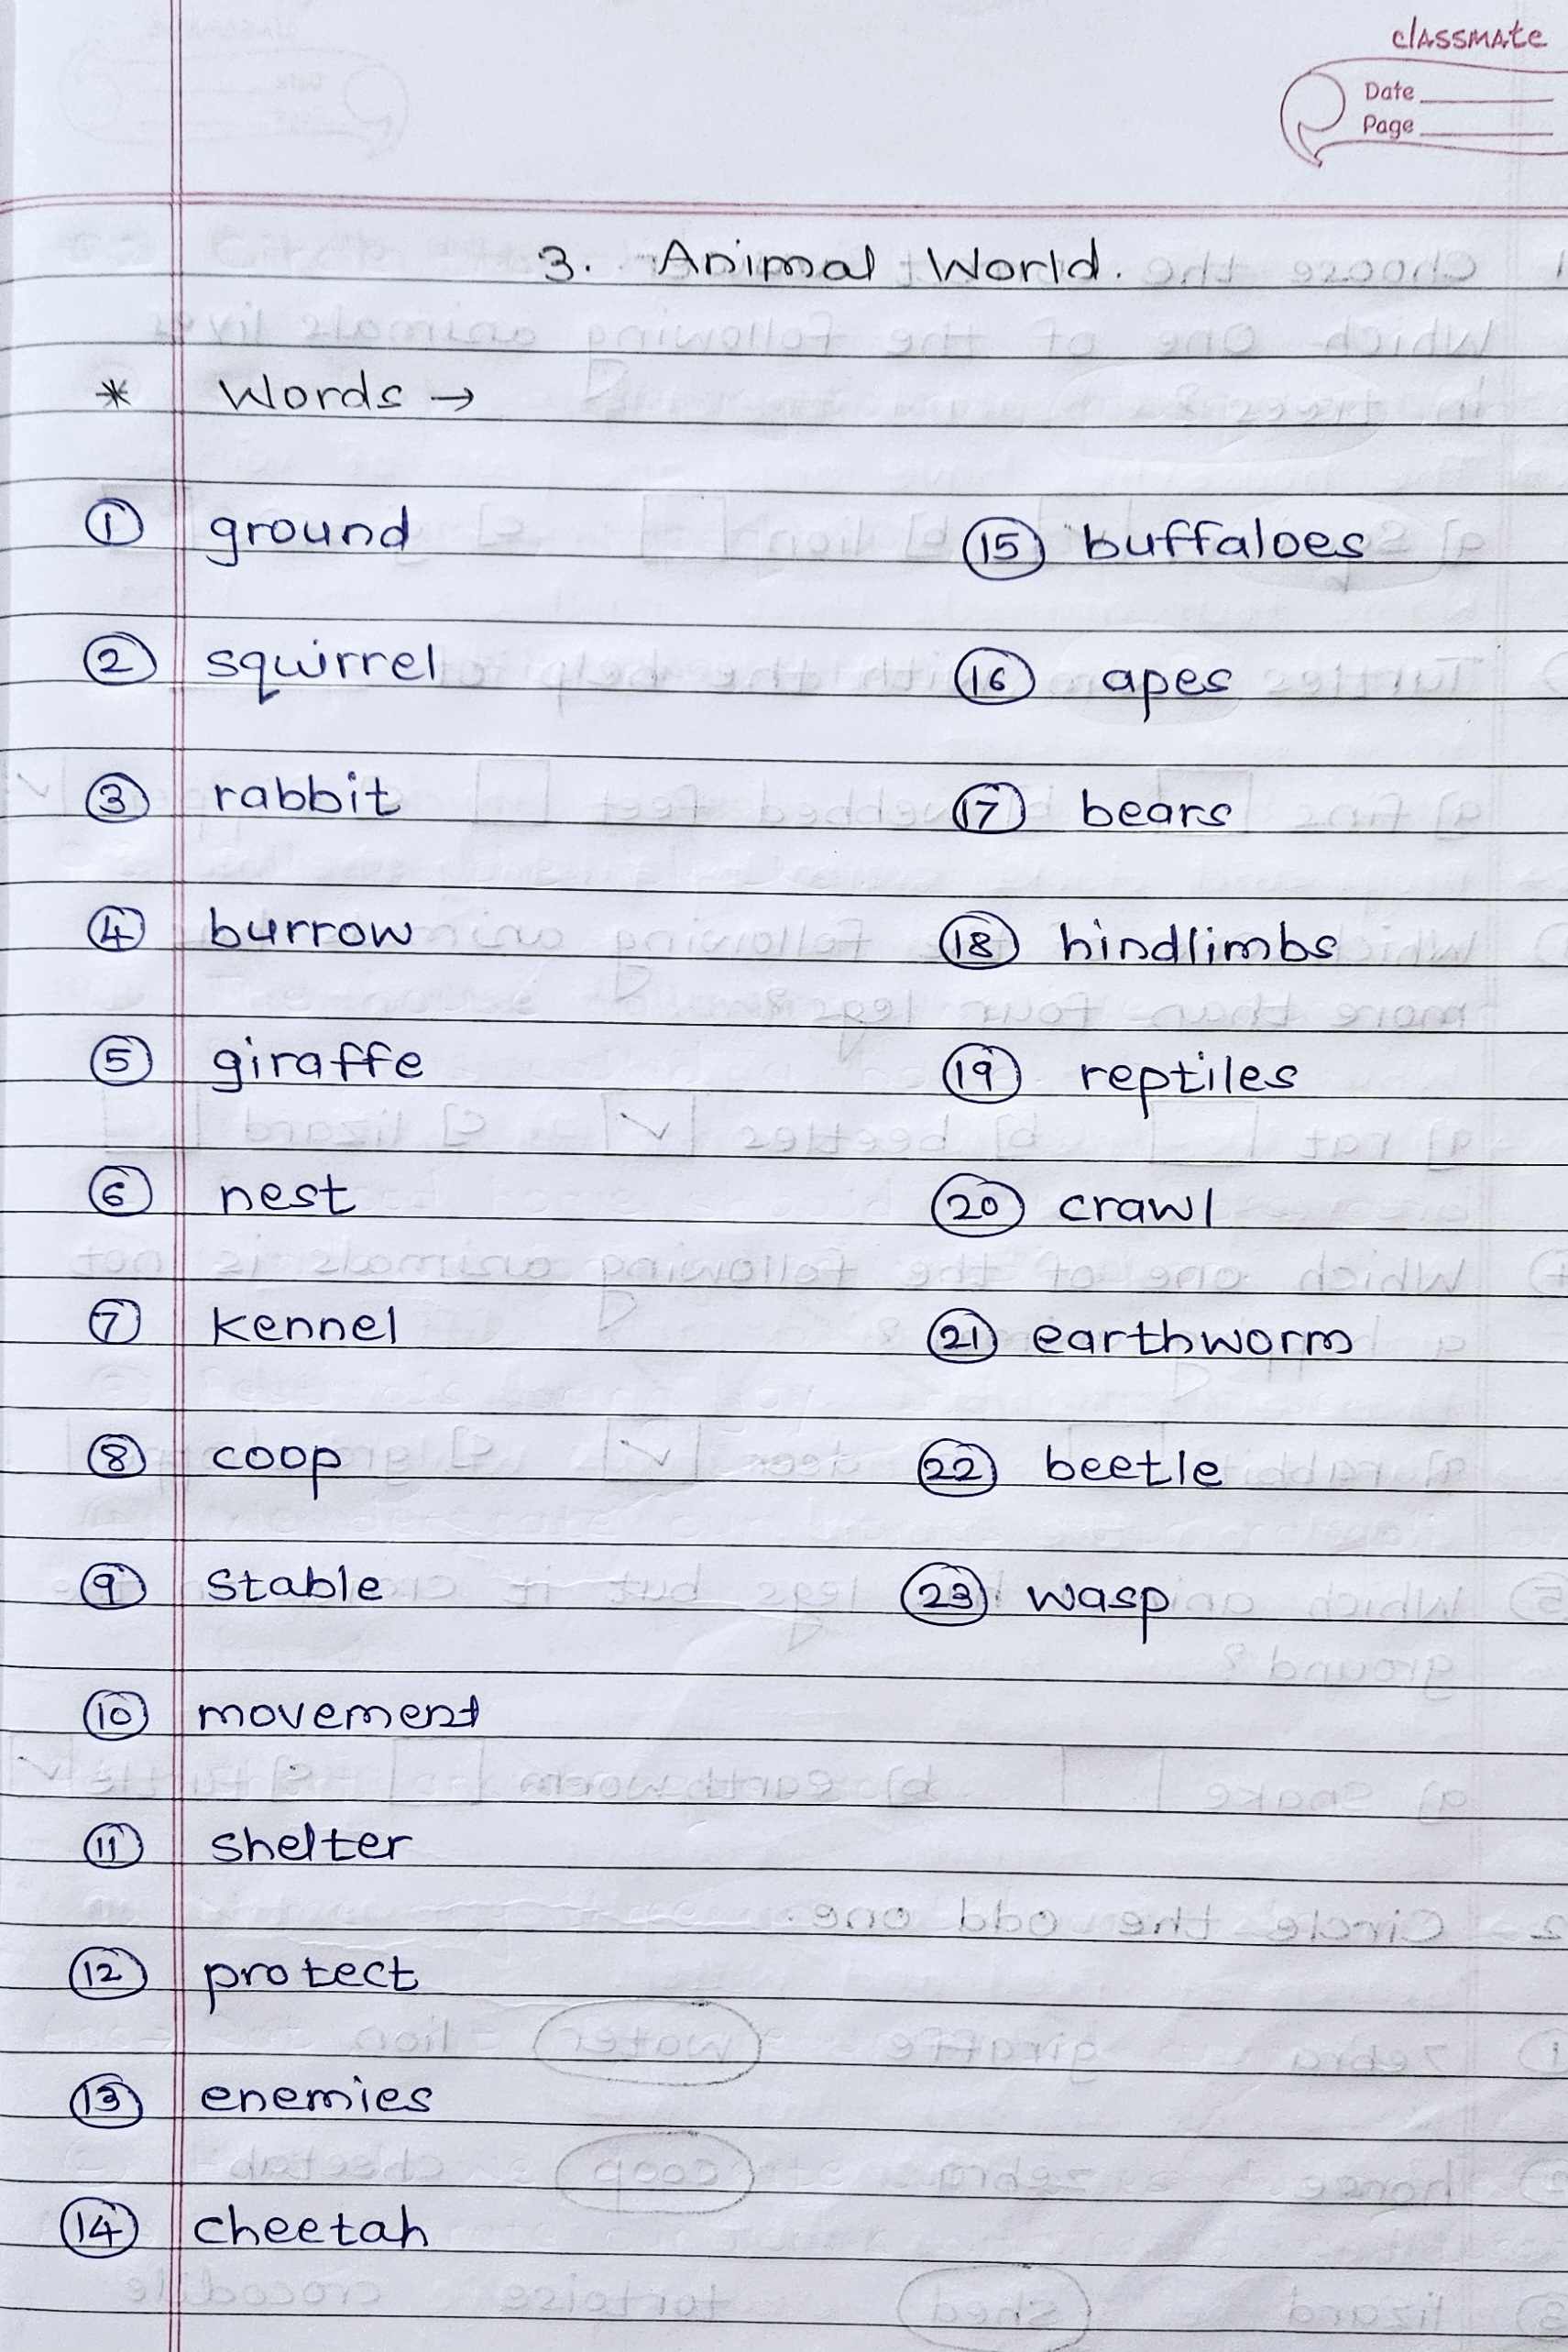 classmate
Date
Page
3. Animal World.
* Words →
① ground
② squirrel
③ rabbit
④ burrow
⑤ giraffe
⑥ nest
⑦ kennel
⑧ coop
⑨ stable
⑩ movement
⑪ shelter
⑫ protect
⑬ enemies
⑭ cheetah
⑮ buffaloes
⑯ apes
⑰ bears
⑱ hindlimbs
⑲ reptiles
⑳ crawl
㉑ earthworm
㉒ beetle
㉓ wasp